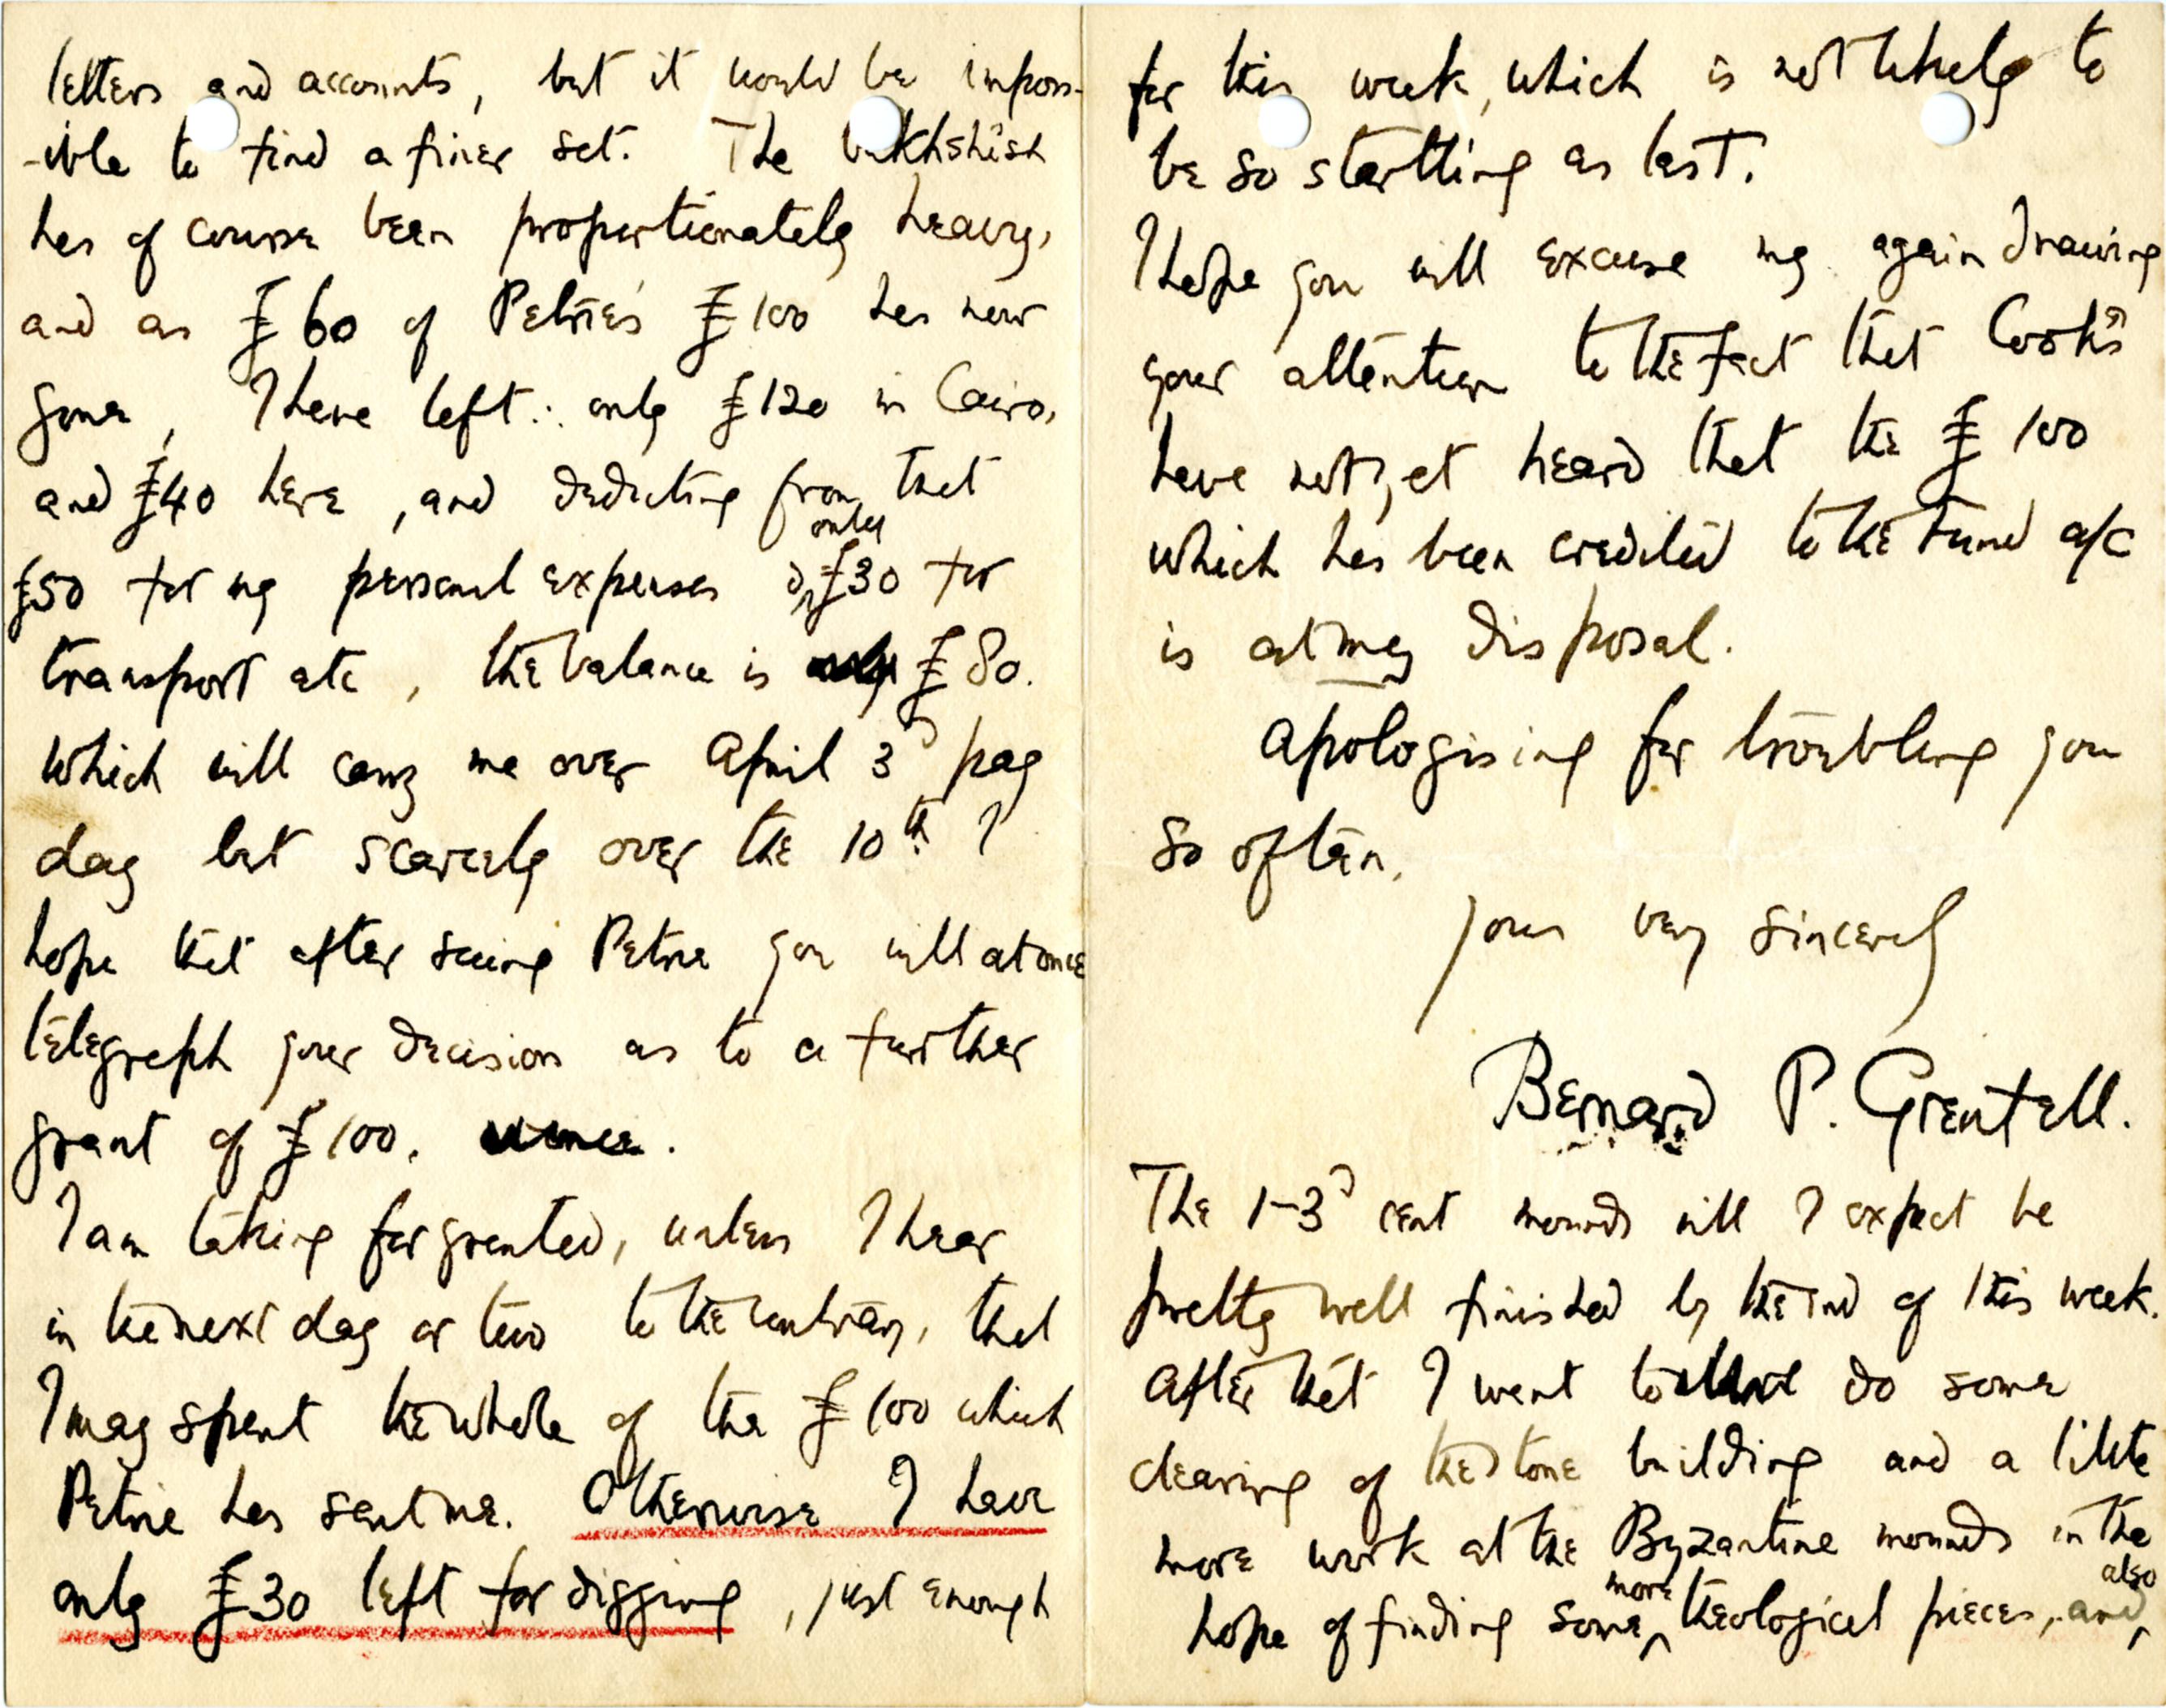 letters and accounts, but it would be imposs-
-ible to find a finer set. The bakhshish
has of course been proportionately heavy,
and as £60 of Petrie's £100 has now
gone, I have left ∴ only £120 in Cairo,
and £40 here, and deducting from that
£50 for my personal expenses & only £30 for
transport etc, the balance is £80.
which will carry me over April 3d pay
day but scarcely over the 10th. I
hope that after seeing Petrie you will at once
telegraph your decision as to a further
grant of £100.
I am taking for granted, unless I hear
in the next day or two to the contrary, that
I may spent the whole of the £100 which
Petrie has sent me. Otherwise I have
only £30 left for digging, just enough
for this week, which is not likely to
be so startling as last.
I hope you will excuse my again drawing
your attention to the fact that Cook's
have not yet heard that the £100
which has been credited to the Fund a/c
is at my disposal.
Apologising for troubling you
so often,
yours very sincerely
Bernard P. Grenfell.
The 1-3d cent mounds will I expect be
pretty well finished by the end of this week.
After that I want to do some
clearing of the stone building and a little
more work at the Byzantine mounds in the
hope of finding some more theological pieces, and also